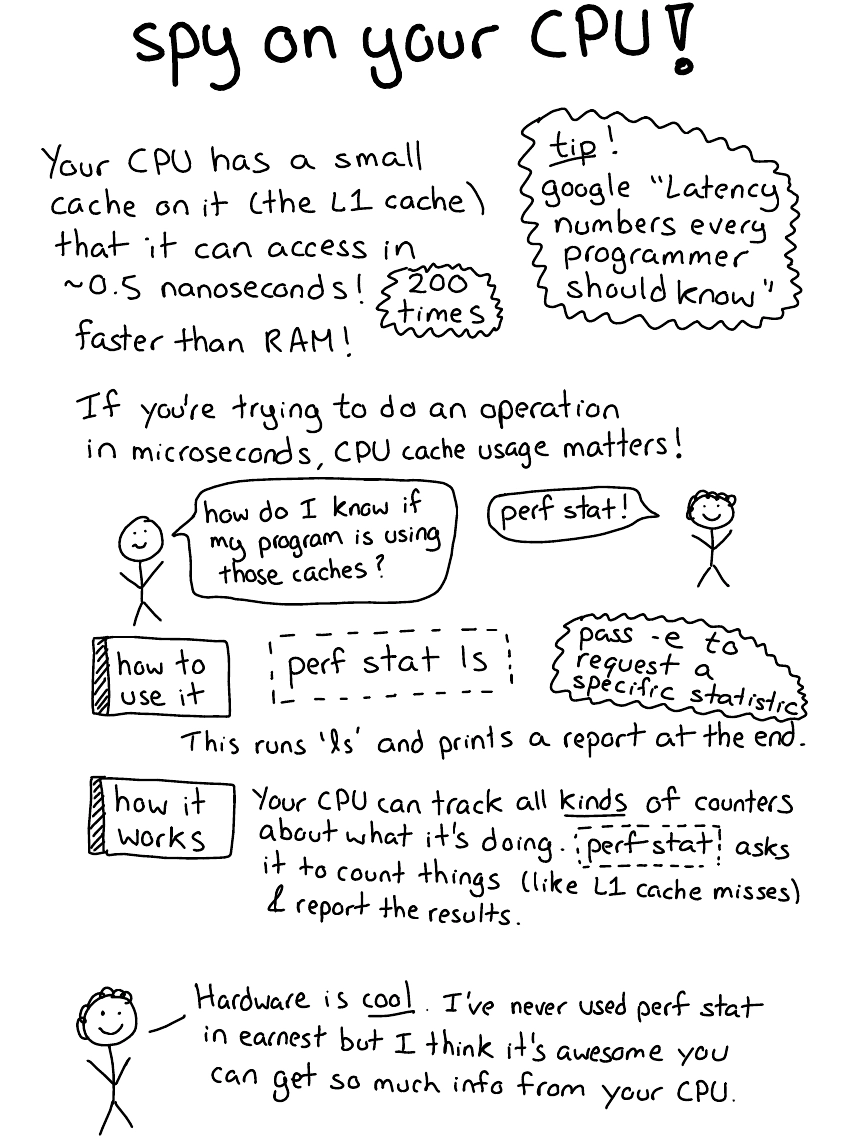 spy on your CPU!
Your CPU has a small
cache on it (the L1 cache)
that it can access in
~0.5 nanoseconds! 200
times
faster than RAM!
tip!
google "Latency
numbers every
programmer
should know"
If you're trying to do an operation
in microseconds, CPU cache usage matters!
how do I know if
my program is using
those caches?
perf stat!
how to
use it
perf stat ls
pass -e to
request a
specific statistic
This runs 'ls' and prints a report at the end.
how it
works
Your CPU can track all kinds of counters
about what it's doing. perf stat asks
it to count things (like L1 cache misses)
& report the results.
Hardware is cool. I've never used perf stat
in earnest but I think it's awesome you
can get so much info from your CPU.